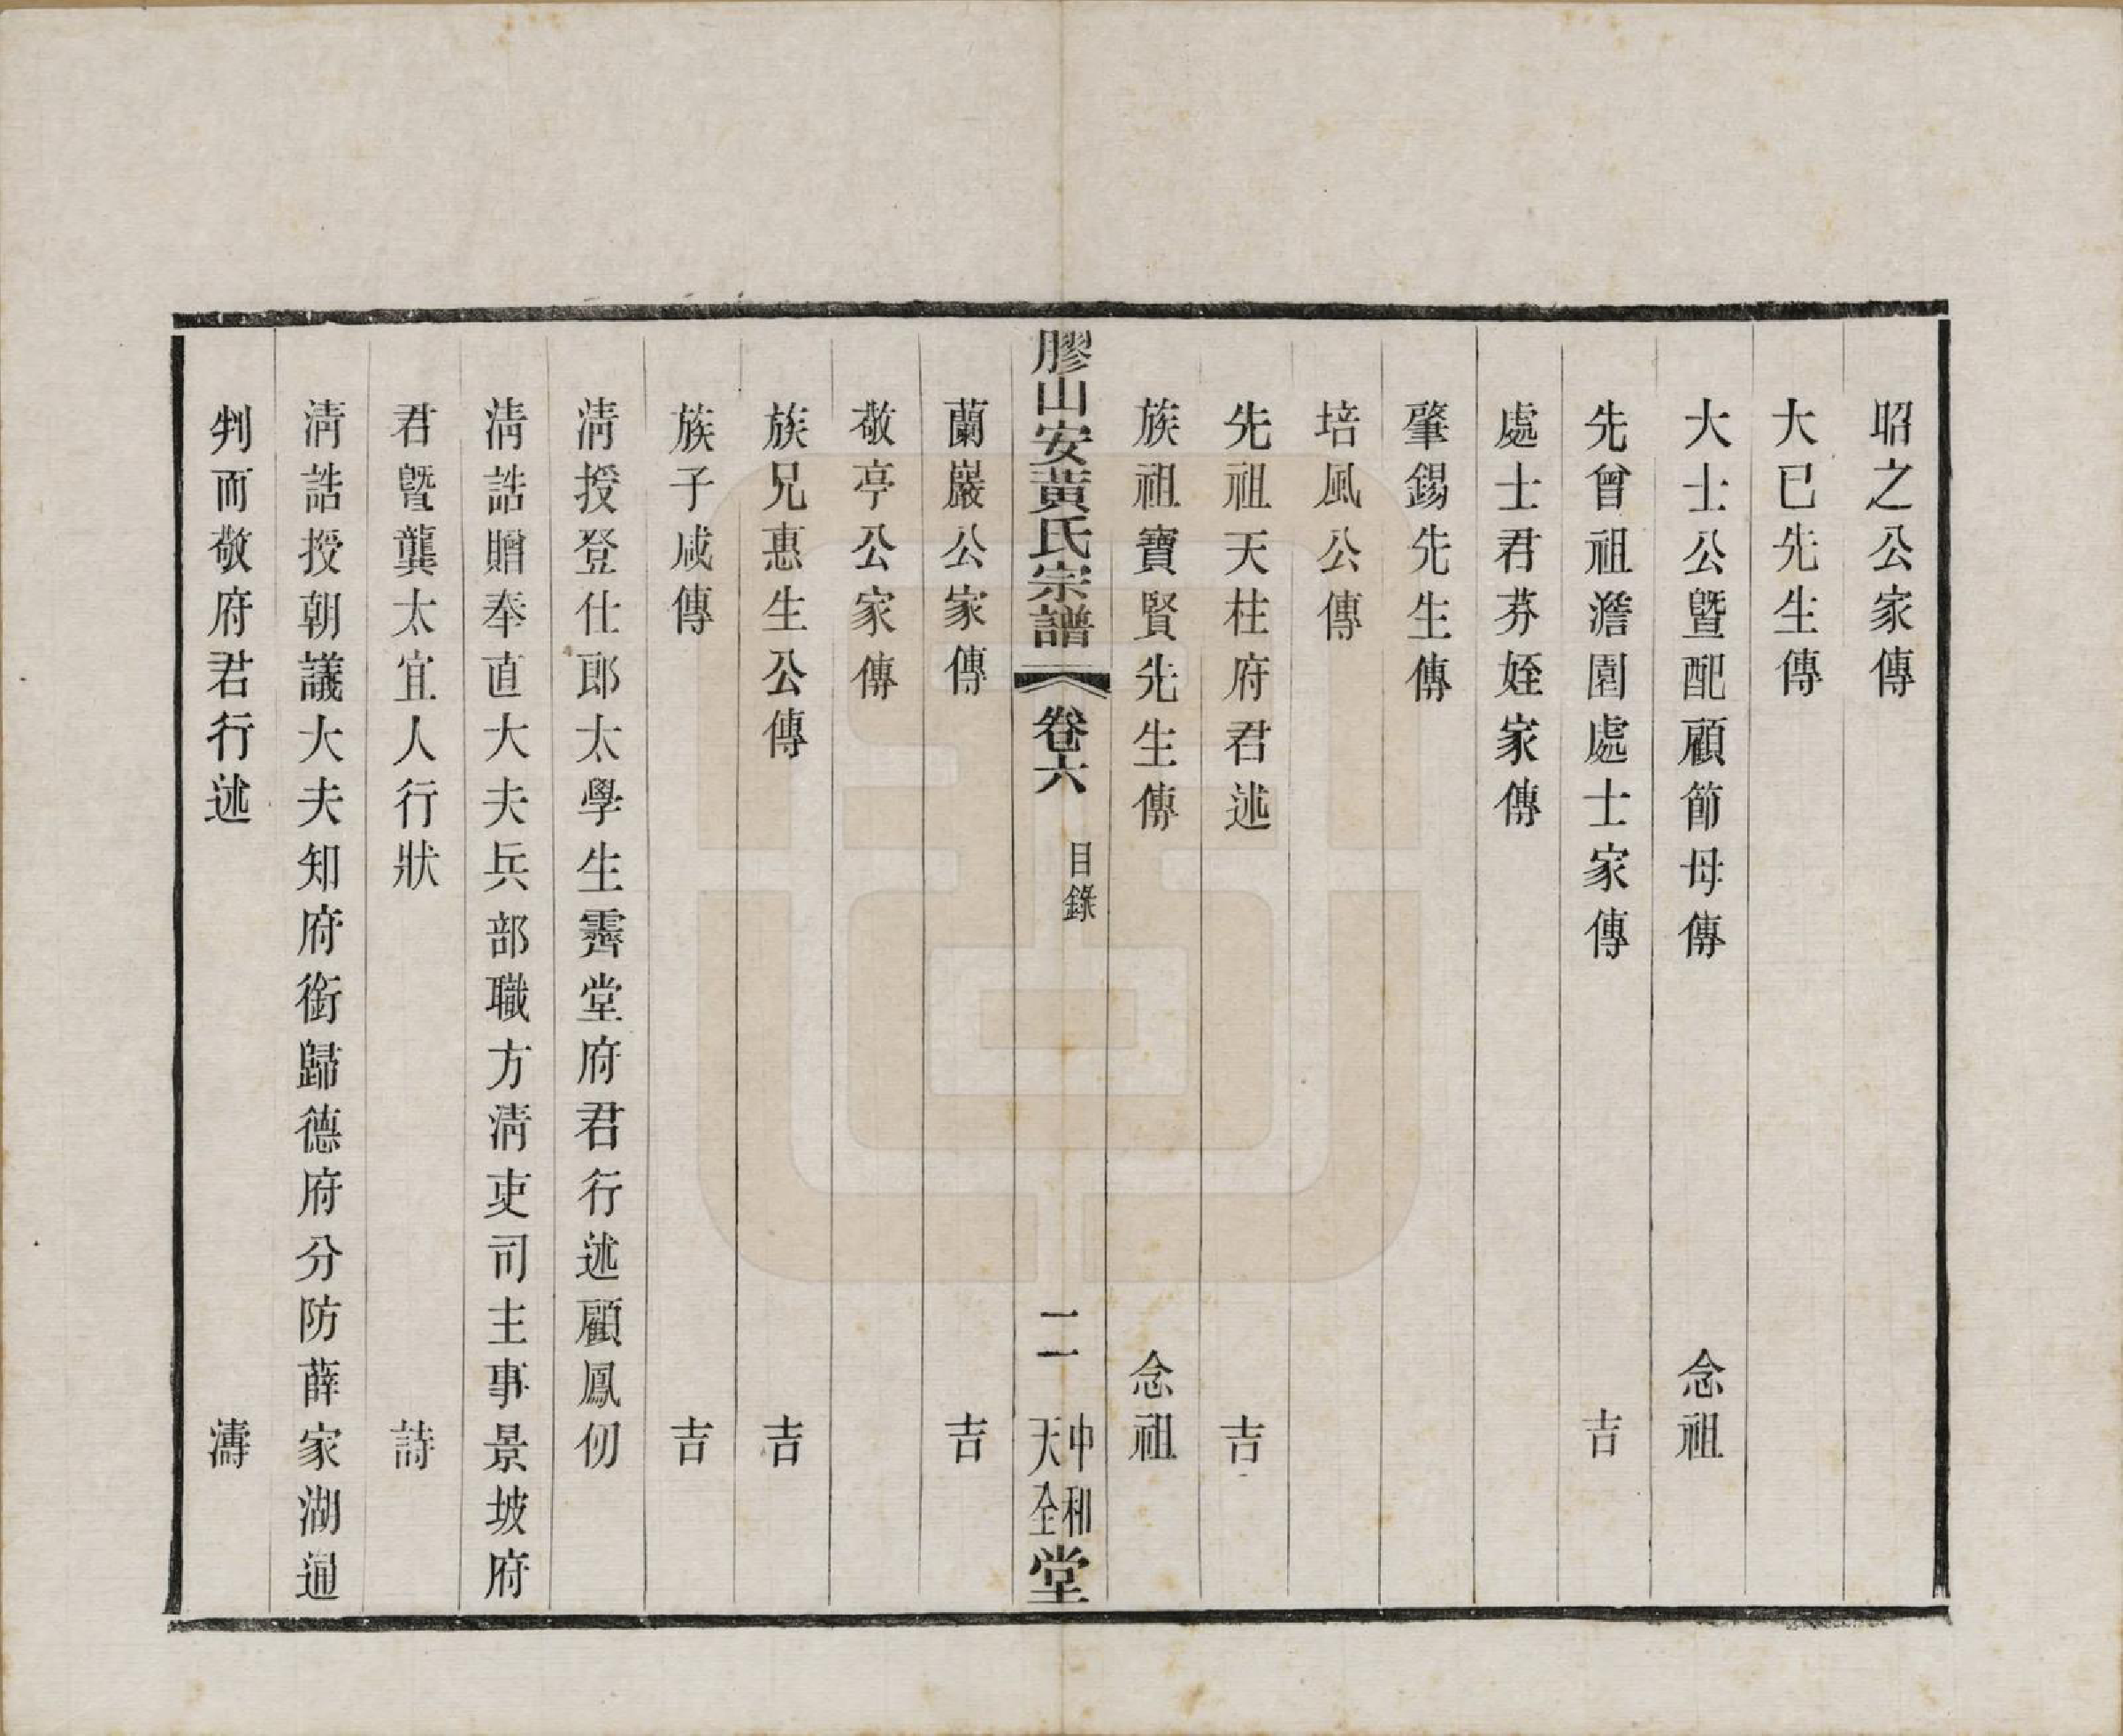 昭之公家傳
大已先生傳
大士公暨配顧節母傳 念祖
先曾祖澹園處士家傳 吉
處士君芬姪家傳
肇錫先生傳
培風公傳
先祖天柱府君述 吉
族祖寶賢先生傳 念祖
膠山安黃氏宗譜 卷六 目錄 二 中和 天全 堂
蘭巖公家傳 吉
敬亭公家傳
族兄惠生公傳 吉
族子咸傳 吉
淸授登仕郎太學生霽堂府君行述顧鳳仞
淸誥贈奉直大夫兵部職方淸吏司主事景坡府
君暨龔太宜人行狀 詩
淸誥授朝議大夫知府銜歸德府分防薛家湖通
判而敬府君行述 濤